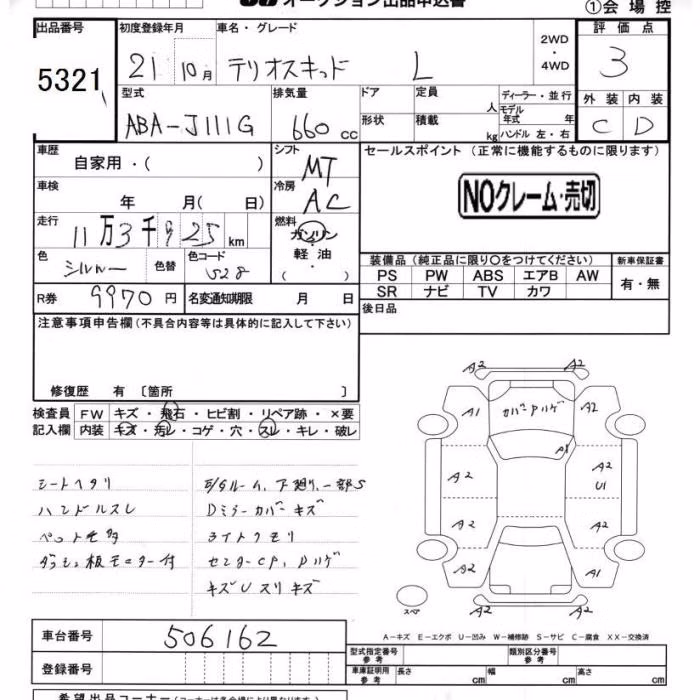 オークション出品申込書
①会場控
出品番号 初度登録年月 車名・グレード 2WD・4WD 評価点
5321 21 10月 テリオスキッド L 3
型式 排気量 ドア 定員 人 ディーラー・並行 外装 内装
ABA-J111G 660cc 形状 積載 kg モデル年式 年 ハンドル 左・右 C D
車歴 自家用・( ) シフト MT セールスポイント(正常に機能するものに限ります)
車検 年 月( 日) 冷房 AC NOクレーム・売切
走行 11万3千925km 燃料 ガソリン・軽油・( )
色 シルバー 色替 色コード S28
装備品(純正品に限り○をつけてください) 新車保証書
PS PW ABS エアB AW 有・無
SR ナビ TV カワ
R券 9970円 名変通知期限 月 日 後日品
注意事項申告欄(不具合内容等は具体的に記入して下さい)
修復歴 有〔箇所 〕
検査員記入欄 FW キズ・飛石・ヒビ割・リペア跡・×要
内装 キズ・汚レ・コゲ・穴・スレ・キレ・破レ
シートヘタリ
ハンドルスレ
ペット毛多
ダッシュ板モニター付
E/Gルーム、下廻り、一部S
Dミラーカバーキズ
ライトクモリ
センターCP、Pハゲ
キズUスリキズ
A2 A2
A1 カバーPハゲ A2
P1
A2 A2 U1
A2 A2
A2 A1
スペア A2 A2
A-キズ E-エクボ U-凹み W-補修跡 S-サビ C-腐食 XX-交換済
車台番号 506162
登録番号
型式指定番号 参考 類別区分番号 参考
車庫証明用 参考 長さ cm 幅 cm 高さ cm
希望出品コーナー